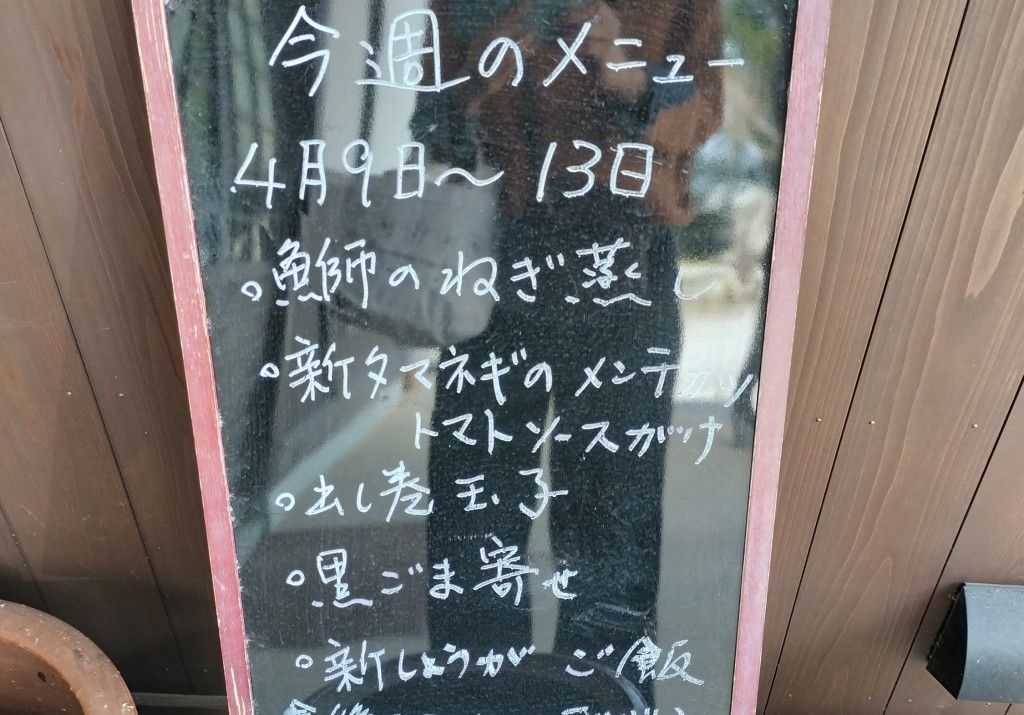 今週のメニュー
4月9日～13日
○鰤のねぎ蒸し
○新タマネギのメンチカツ
トマトソースがけ
○出し巻玉子
○黒ごま寄せ
○新しょうがご飯